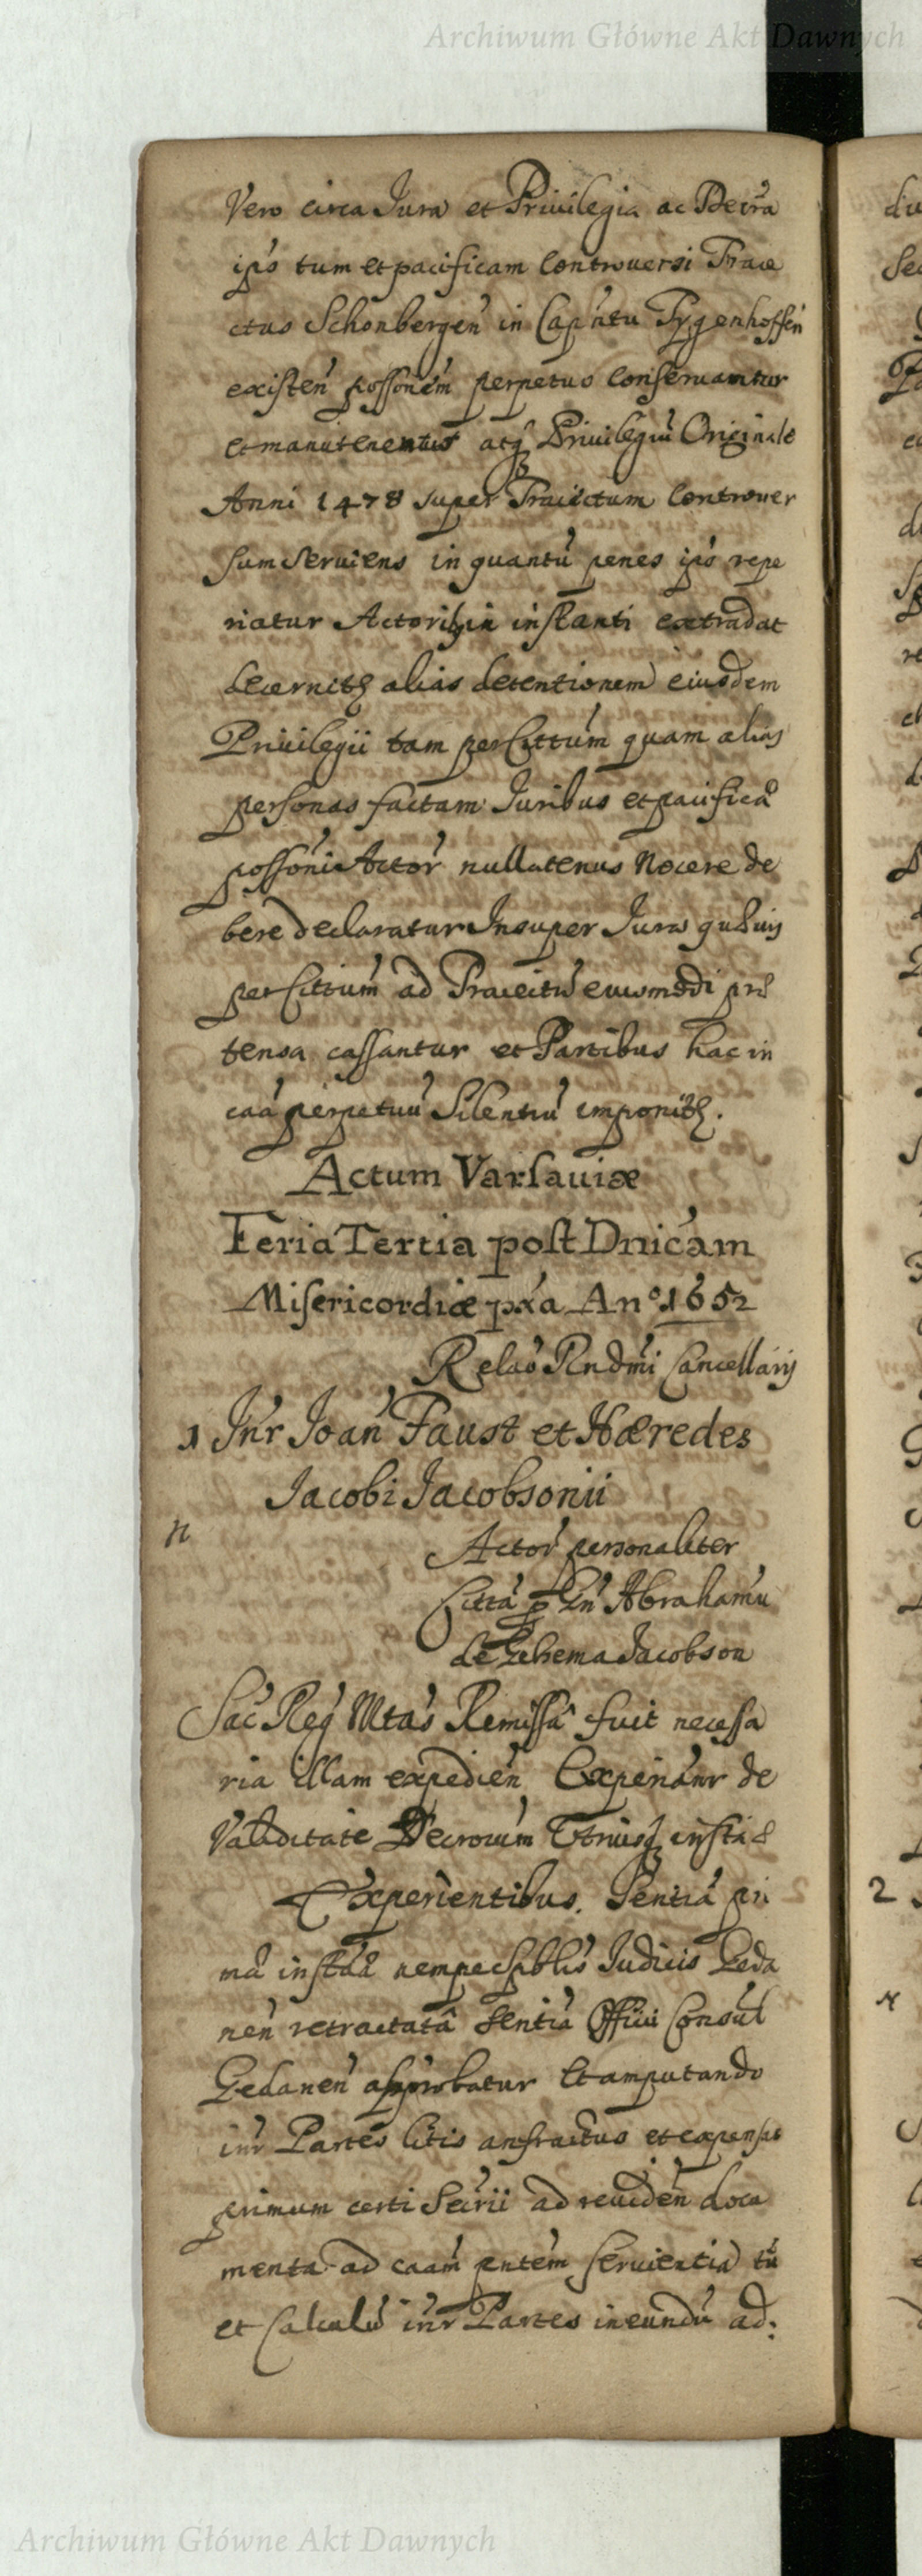 Archiwum Główne Akt Dawnych
Vero circa Jura et Privilegia ac Decra
ips tum et pacificam Controversi Traie
ctus Schonbergen in Cap'ntu Tygenhoffen
existen possonem perpetuo Conservantur
et manutenentur atq Privilegiu Originale
Anni 1478 super Traiectum Controver
sum Serviens in quantu penes ips repe
riatur Actoribq in instanti extradat
decernitq alias detentionem eiusdem
Privilegii tam per Cittum quam alias
personas factam Juribus et pacifica
possoni Actor nullatenus Nocere de
bere declaratur Insuper Jura quævis
per Cittum ad Traiectu euiusmodi præ
tensa cassantur et Partibus hac in
caa perpetuu Silentiu imponitq.
Actum Varsaviæ
Feria Tertia post Dnicam
Misericordiæ pxa Ano 1652
Relao Rndmi Cancellarij
1 Inr Joan Faust et Hæredes
Jacobi Jacobsonii
n
Actor personaliter
Citta p Gn Abrahamu
de Gehema Jacobson
Sac Reg Mtas Remissa fuit necessa
ria illam expedien Experianr de
Validitate Decrorum Utriusq insta
Experientibus. Sentia pri
ma instaa nempe Spblis Judicis Geda
nen retractata Sentia Officii Consul
Gedanen approbatur Et amputando
inr Partes litis anfractus et expensas
primum certi Secrii ad reviden docu
menta ad caam pntem servientia tu
et Calculu inr Partes ineundu ad:
2
Archiwum Główne Akt Dawnych